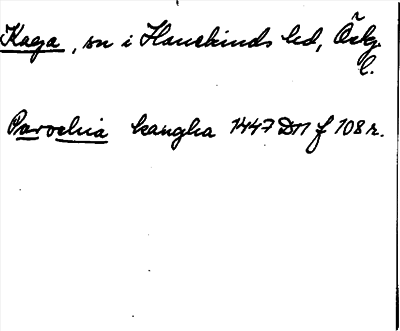 Kaga, sn i Hanekinds hd, Östg.
l.
Parochia kangha 1447 Dn f 108 r.